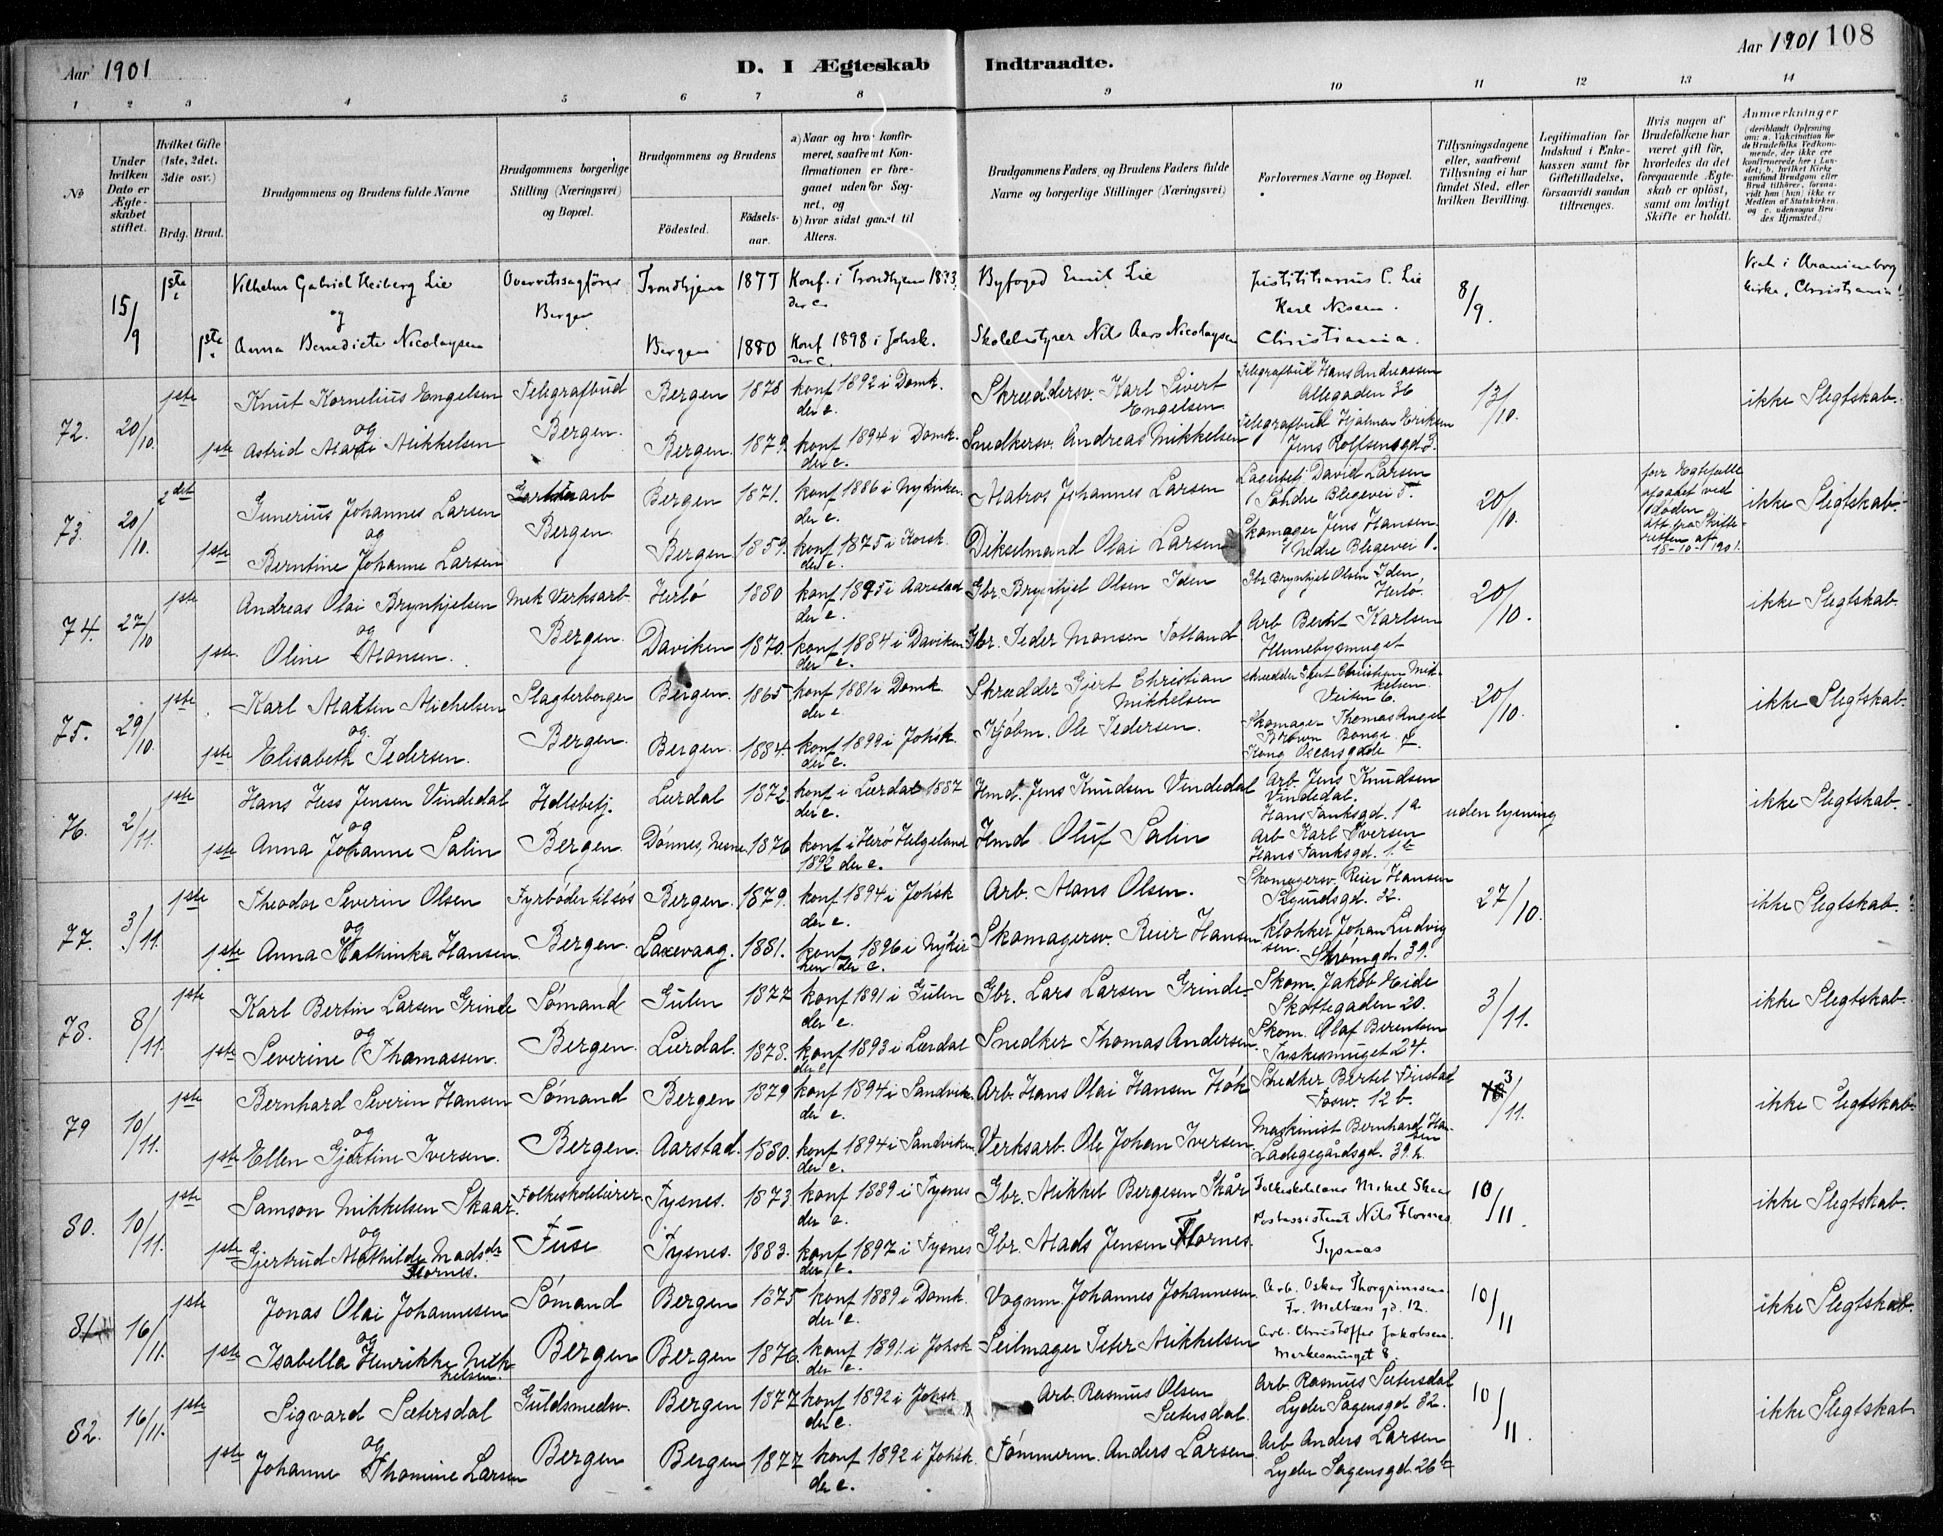 Aar 1901
D. I Ægteskab Indtraadte.
Aar 1901 108
1 2 3 4 5 6 7 8 9 10 11 12 13 14
No
Under hvilken Dato er Ægteskabet stiftet.
Hvilket Gifte (1ste, 2det, 3die osv.)
Brdg. Brud.
Brudgommens og Brudens fulde Navne
Brudgommens borgerlige Stilling (Næringsvei) og Bopæl.
Brudgommens og Brudens
Fødested. Fødsels-aar.
a) Naar og hvor konfirmeret, saafremt Konfirmationen er foregaaet udenfor Sognet, og
b) hvor sidst gaaet til Alters.
Brudgommens Faders og Brudens Faders fulde Navne og borgerlige Stillinger (Næringsvei)
Forlovernes Navne og Bopæl.
Tillysningsdagene eller, saafremt Tillysning ei har fundet Sted, efter hvilken Bevilling.
Legitimation for Indskud i Enkekassen samt for Giftetilladelse, forsaavidt saadan tiltrænges.
Hvis nogen af Brudefolkene har været gift før, hvorledes da det foregaaende Ægteskab er opløst, samt om lovligt Skifte er holdt.
Anmærkninger
15/9 1ste Vilhelm Gabriel Heiberg Lie Overretssagfører Trondhjem 1877 Konf. i Trondhjem Byfoged Emil Lie Justititiarius C. Lie 8/9. Viet i Uranienborg
og Bergen der c. Karl Nissen. kirke, Christiania
1ste Anna Benedicte Nicolaysen Bergen 1880 Konf 1898 i Johsk. der c. Skolebestyrer Nils Aars Nicolaysen Christiania.
72. 20/10. 1ste Knut Kornelius Engelsen Telegrafbud Bergen 1878 konf 1892 i Domk. der c. Skræddersv. Karl Sivert Engelsen Telegrafbud Hans Andreassen Allegaden 36 13/10. ikke Slegtskab.
og
1ste Astrid Marie Mikkelsen Bergen. Bergen. 1879. konf 1894 i Domk. der c. Snedkersv. Andreas Mikkelsen Telegrafbud Hjalmar Eriksen Jens Rolfsensgd 3.
73. 20/10. 2det Gunerius Johannes Larsen Bergen 1871. konf 1886 i Nykirken der c. Matros Johannes Larsen Lagerbetj. David Larsen Søndre Blegevei 5. 20/10. forr. Egtefælle afgaaet ved Døden att. fra Skifteretten af 18-10-1901. ikke Slegtskab.
og Bergen
1ste Berntine Johanne Larsen Bergen 1859. konf 1875 i Korsk. der c. Dikselmand Olai Larsen Skomager Jens Hansen Blegevei 1.
74. 27/10 1ste Andreas Olai Brynhjelsen Mek Verksarb. Herlø 1880 konf 1895 i Aarstad der c. Gbr Brynhjel Olsen Iden Gbr Brynhjel Olsen Iden Herlø. 20/10. ikke Slegtskab
og
1ste. Oline Mansen. Bergen. Daviken 1870. konf 1884 i Daviken der c. Gbr. Peder Monsen Totland Arb Berht Karlsen Hennebysmuget
75. 29/10 1ste Karl Martin Michelsen Slagterborger Bergen. 1865 konf 1881 i Domk. der c. Skrædder Gjert Christian Mikkelsen skrædder Gjert Christian Mikkelsen Veiten 6. 20/10. ikke Slegtskab.
og
1ste Elisabeth Pedersen. Bergen. Bergen. 1884. konf 1899 i Johsk. der c. Kjøbm. Ole Pedersen. Skomager Thomas Angel Brown Bonge Kong Oscarsgade
76. 2/11. 1ste Hans Hess Jensen Vindedal Hdlsbetj. Lærdal 1872. konf i Lærdal 1887 der c. Hmd. Jens Knudsen Vindedal Arb. Jens Knudsen Vindedal. Hans Tanksgd. 1a uden lysning ikke Slegtskab.
og
1ste Anna Johanne Salin Bergen. Dønnes, Nesne 1876 konf i Herø Helgeland 1892 der c. Hmd Oluf Salin Arb Karl Iversen Hans Tanksgd.
77. 3/11. 1ste Theodor Severin Olsen Fyrbøder tilsøs Bergen. 1879. konf 1894 i Johsk der c. Arb. Mans Olsen. Skomagersv. Reier Hansen Sigurdsgd. 32. 27/10. ikke Slegtskab.
og
1ste Anna Kathinka Hansen Bergen. Laxevaag. 1881. konf 1896 i Nykirken der c. Skomagersv. Reier Hansen klokker Johan Ludvigsen. Strømgd. 39.
78. 8/11. 1ste Karl Bertin Larsen Grinde Sømand Gulen 1877 konf 1891 i Gulen der c. Gbr. Lars Larsen Grinde Skom. Jakob Heide Skottegaden 20. 3/11. ikke Slegtskab.
og
1ste Severine Thomassen. Bergen. Lærdal. 1878. konf 1893 i Lærdal der c. Snedker Thomas Andersen. Skom. Olaf Berentsen Tyskesmuget 24.
79 10/11. 1ste Bernhard Severin Hansen Sømand Bergen 1879 konf 1894 i Sandviken der c. Arb. Hans Olai Hansen Høk Snedker Bertel Fristad Fosw. 12 b. 3/11. ikke Slegtskab.
og
1ste Ellen Gjertine Iversen. Bergen. Aarstad. 1880. konf 1894 i Sandviken der c. Verksarb. Ole Johan Iversen Maskinist Bernhard Hansen Ladegegårdsgd. 39.
80. 10/11. 1ste Samson Mikkelsen Skaar. Folkeskolelærer Tysnes. 1873. konf 1889 i Tysnes der c. Gbr. Mikkel Bergesen Skår Folkeskolelærer Mikal Skaar 10/11. ikke Slegtskab.
og Postassistent Nils Flornes
1ste Gjertrud Mathilde Madsdr Flornes. Fuse Tysnes. 1883. konf 1897 i Tysnes der c. Gbr. Mads Jensen Flornes. Tysnes
81 16/11. 1ste Jonas Olai Johannesen Sømand Bergen 1875 konf 1889 i Domk. der c. Vognm. Johannes Johannesen Arb. Oskar Thorgrimsen Fr. Meltzers gd. 12. 10/11 ikke Slegtskab.
og
1ste Isabella Henrikke Mikkelsen. Bergen Bergen 1876. konf 1891 i Johsk der c. Seilmager Peter Mikkelsen Arb. Christoffer Jakobsen. Markesmuget 8.
82. 16/11. 1ste Sigvard Sætersdal Guldsmedsv. Bergen 1877 konf 1892 i Johsk. der c. Arb. Rasmus Olsen Sætersdal. Arb Rasmus Sætersdal Lyder Sagensgd 32. 10/11. ikke Slegtskab
og
1ste Johanne Thomine Larsen Bergen Bergen 1877 konf 1892 i Johsk. der c. Tømmerm. Anders Larsen Arb Anders Larsen Lyder Sagensgd. 26